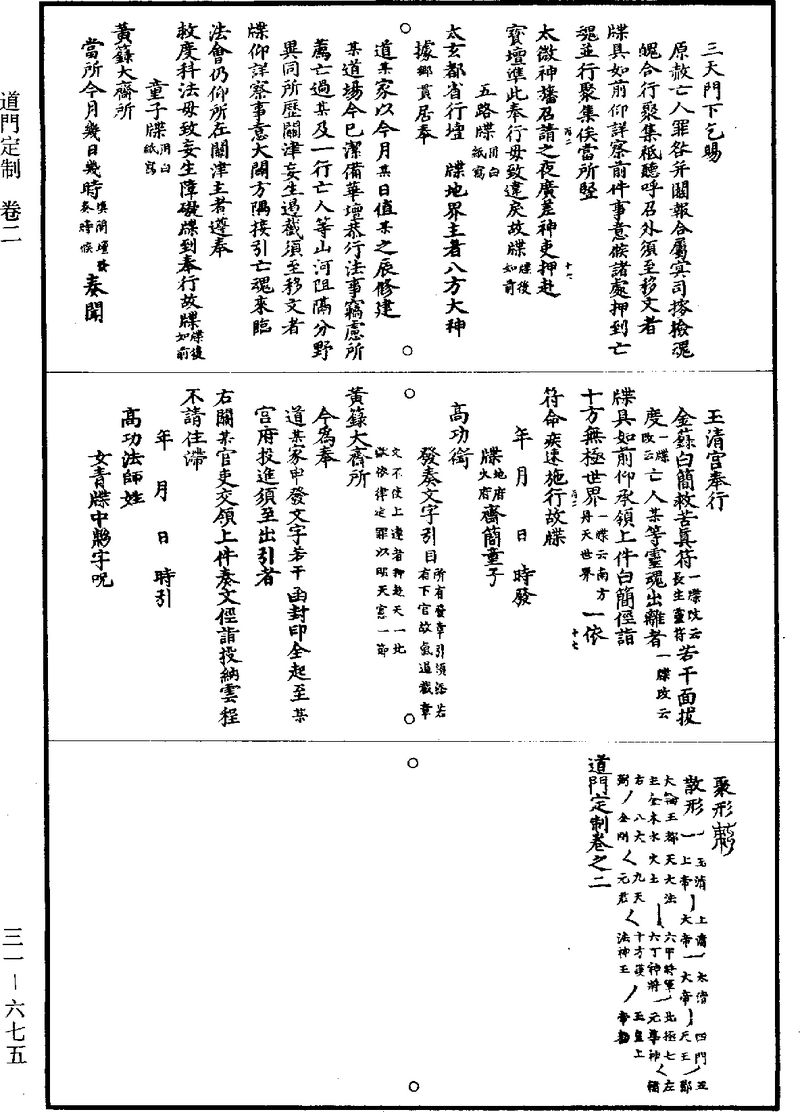 三天門下乞賜
原赦亡人罪咎并關報合屬冥司搜撿魂
魄合行聚集祗聽呼召外須至移文者
牒具如前仰詳察前件事意候諸處押到亡
魂並行聚集俟當所堅
太微神旛召請之夜廣差神吏押赴
寶壇準此奉行毋致違戾故牒牒後如前
五路牒用白紙寫
太玄都省行壇　牒地界主者八方大神
據鄉貫居奉
道某家以今月某日值某之辰修建
某道場今已潔備華壇恭行法事竊慮所
薦亡過某及一行亡人等山河阻隔分野
異同所歷關津妄生遏截須至移文者
牒仰詳察事意大開方隅接引亡魂來臨
法會仍仰所在關津主者遵奉
救度科法毋致妄生障礙牒到奉行故牒牒後如前
童子牒用白紙寫
黃籙大齋所
當所今月幾日幾時焚簡壇發奏時候奏聞
玉清宮奉行
金籙白簡救苦真符一牒改云長生靈符若干面拔
度一牒改云亡人某等靈魂出離者一牒改云
牒具如前仰承領上件白簡徑詣
十方無極世界一牒云南方丹天世界一依
符命疾速施行故牒
年　月　日　時發
牒地府水府齋簡童子
高功銜
發奏文字引目所有發章引須添若有下官故氣遏截章
文不使上達者押赴天一北獄依律定罪以明天憲一節
黃籙大齋所
今為奉
道某家申發文字若干函封印全起至某
宮府投進須至出引者
右關某官吏交領上件奏文徑詣投納雲程
不請住滯
年　月　日　時引
高功法師姓
女青牒中夥字呪
聚形
散形
道門定制卷之二
道門定制　卷二
三一－六七五